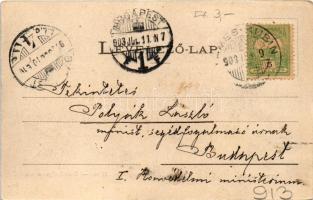 Ft 3,-
BUDAPEST
903 JUL. 11. N 7
LEVELEZŐ-LAP
Tekintetes
Polyák László
minist. segédfogalmazó úrnak
Budapest
I. Honvédelmi ministerium
913